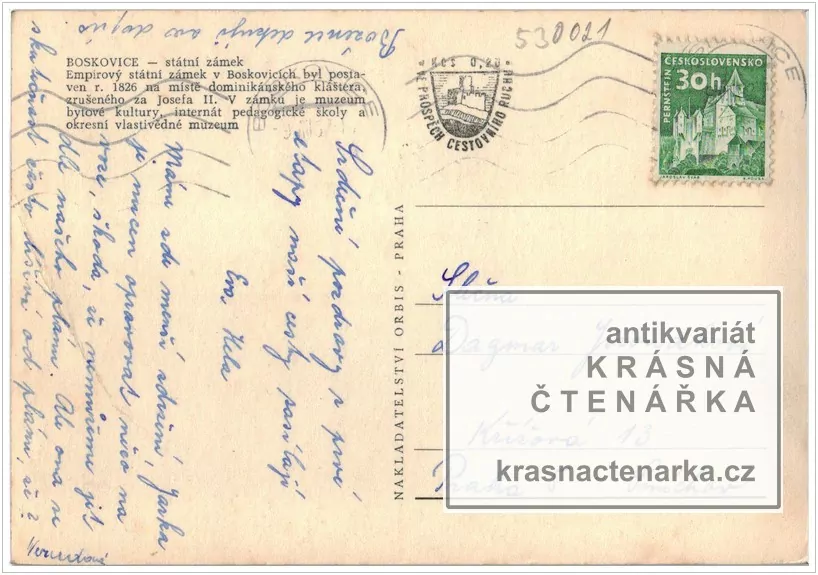 530021
BOSKOVICE — státní zámek
Empirový státní zámek v Boskovicích byl posta-
ven r. 1826 na místě dominikánského kláštera,
zrušeného za Josefa II. V zámku je muzeum
bytové kultury, internát pedagogické školy a
okresní vlastivědné muzeum
Kčs 0,20
VE PROSPĚCH CESTOVNÍHO RUCHU
ČESKOSLOVENSKO
30h
PERNŠTEJN
Srdečné pozdravy z první
etapy naší cesty posílají
Eva, Hela
Máme zde menší zdržení, Jarka
je nucen opravovat něco na
voze, škoda, že nemůžeme jít
dle našeho plánu. Ale ona se
skutečnost často liší od plánu, že?
NAKLADATELSTVÍ ORBIS - PRAHA
Slečna
Dagmar
Křížová 13
Praha 5
antikvariát
KRÁSNÁ
ČTENÁŘKA
krasnactenarka.cz